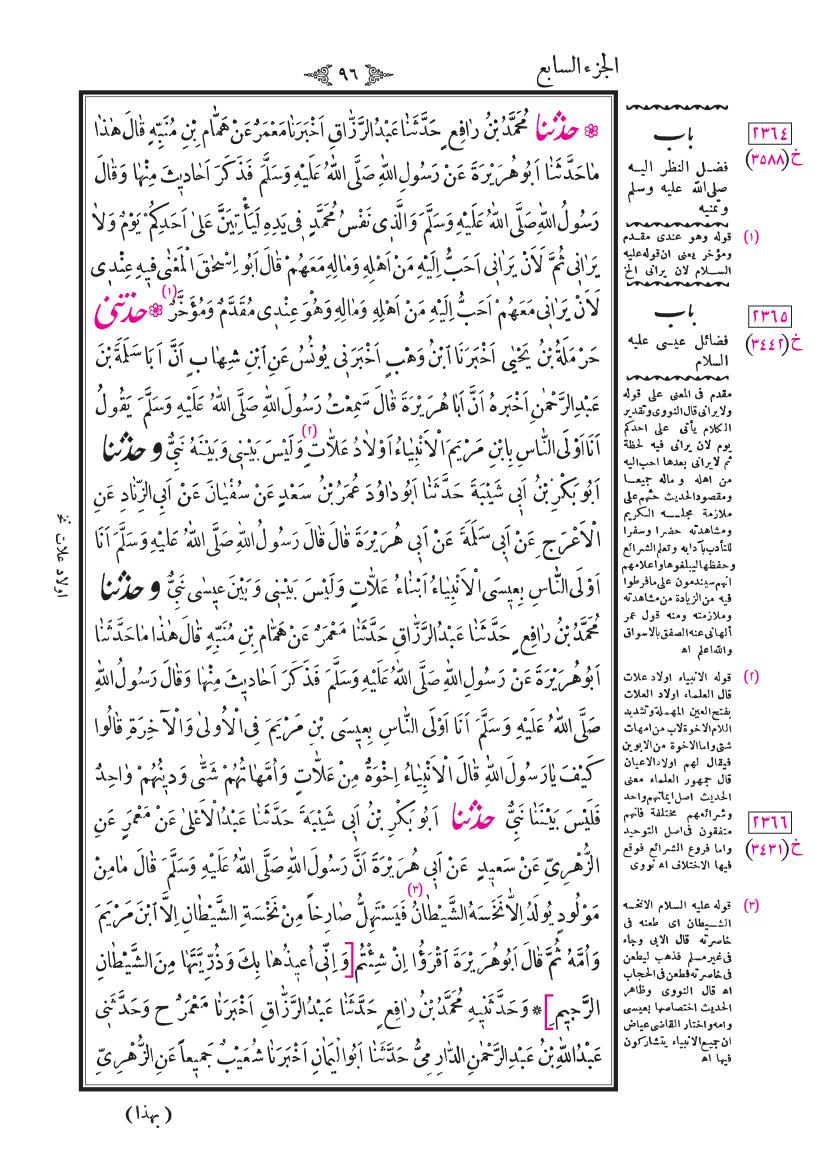 الجزء السابع
٩٦
❁ حَدَّثَنَا مُحَمَّدُ بْنُ رَافِعٍ حَدَّثَنَا عَبْدُ الرَّزَّاقِ أَخْبَرَنَا مَعْمَرٌ عَنْ هَمَّامِ بْنِ مُنَبِّهٍ قَالَ هٰذَا
مَا حَدَّثَنَا أَبُو هُرَيْرَةَ عَنْ رَسُولِ اللهِ صَلَّى اللهُ عَلَيْهِ وَسَلَّمَ فَذَكَرَ أَحَادِيثَ مِنْهَا وَقَالَ
رَسُولُ اللهِ صَلَّى اللهُ عَلَيْهِ وَسَلَّمَ وَالَّذِي نَفْسُ مُحَمَّدٍ فِي يَدِهِ لَيَأْتِيَنَّ عَلَى أَحَدِكُمْ يَوْمٌ وَلَا
يَرَانِي ثُمَّ لَأَنْ يَرَانِي أَحَبُّ إِلَيْهِ مِنْ أَهْلِهِ وَمَالِهِ مَعَهُمْ قَالَ أَبُو إِسْحٰقَ الْمَعْنَى فِيهِ عِنْدِي
لَأَنْ يَرَانِي مَعَهُمْ أَحَبُّ إِلَيْهِ مِنْ أَهْلِهِ وَمَالِهِ وَهُوَ عِنْدِي مُقَدَّمٌ وَمُؤَخَّرٌ (١) ❁ حَدَّثَنِي
حَرْمَلَةُ بْنُ يَحْيَى أَخْبَرَنَا ابْنُ وَهْبٍ أَخْبَرَنِي يُونُسُ عَنِ ابْنِ شِهَابٍ أَنَّ أَبَا سَلَمَةَ بْنَ
عَبْدِ الرَّحْمٰنِ أَخْبَرَهُ أَنَّ أَبَا هُرَيْرَةَ قَالَ سَمِعْتُ رَسُولَ اللهِ صَلَّى اللهُ عَلَيْهِ وَسَلَّمَ يَقُولُ
أَنَا أَوْلَى النَّاسِ بِابْنِ مَرْيَمَ الْأَنْبِيَاءُ أَوْلَادُ عَلَّاتٍ (٢) وَلَيْسَ بَيْنِي وَبَيْنَهُ نَبِيٌّ وحَدَّثَنَا
أَبُو بَكْرِ بْنُ أَبِي شَيْبَةَ حَدَّثَنَا أَبُو دَاوُدَ عُمَرُ بْنُ سَعْدٍ عَنْ سُفْيَانَ عَنْ أَبِي الزِّنَادِ عَنِ
الْأَعْرَجِ عَنْ أَبِي سَلَمَةَ عَنْ أَبِي هُرَيْرَةَ قَالَ قَالَ رَسُولُ اللهِ صَلَّى اللهُ عَلَيْهِ وَسَلَّمَ أَنَا
أَوْلَى النَّاسِ بِعِيسَى الْأَنْبِيَاءُ أَبْنَاءُ عَلَّاتٍ وَلَيْسَ بَيْنِي وَبَيْنَ عِيسَى نَبِيٌّ وحَدَّثَنَا
مُحَمَّدُ بْنُ رَافِعٍ حَدَّثَنَا عَبْدُ الرَّزَّاقِ حَدَّثَنَا مَعْمَرٌ عَنْ هَمَّامِ بْنِ مُنَبِّهٍ قَالَ هٰذَا مَا حَدَّثَنَا
أَبُو هُرَيْرَةَ عَنْ رَسُولِ اللهِ صَلَّى اللهُ عَلَيْهِ وَسَلَّمَ فَذَكَرَ أَحَادِيثَ مِنْهَا وَقَالَ رَسُولُ اللهِ
صَلَّى اللهُ عَلَيْهِ وَسَلَّمَ أَنَا أَوْلَى النَّاسِ بِعِيسَى بْنِ مَرْيَمَ فِي الْأُولَى وَالْآخِرَةِ قَالُوا
كَيْفَ يَا رَسُولَ اللهِ قَالَ الْأَنْبِيَاءُ إِخْوَةٌ مِنْ عَلَّاتٍ وَأُمَّهَاتُهُمْ شَتَّى وَدِينُهُمْ وَاحِدٌ
فَلَيْسَ بَيْنَنَا نَبِيٌّ حَدَّثَنَا أَبُو بَكْرِ بْنُ أَبِي شَيْبَةَ حَدَّثَنَا عَبْدُ الْأَعْلَى عَنْ مَعْمَرٍ عَنِ
الزُّهْرِيِّ عَنْ سَعِيدٍ عَنْ أَبِي هُرَيْرَةَ أَنَّ رَسُولَ اللهِ صَلَّى اللهُ عَلَيْهِ وَسَلَّمَ قَالَ مَا مِنْ
مَوْلُودٍ يُولَدُ إِلَّا نَخَسَهُ الشَّيْطَانُ (٣) فَيَسْتَهِلُّ صَارِخًا مِنْ نَخْسَةِ الشَّيْطَانِ إِلَّا ابْنَ مَرْيَمَ
وَأُمَّهُ ثُمَّ قَالَ أَبُو هُرَيْرَةَ اقْرَؤُا إِنْ شِئْتُمْ [وَإِنِّي أُعِيذُهَا بِكَ وَذُرِّيَّتَهَا مِنَ الشَّيْطَانِ
الرَّجِيمِ] * وَحَدَّثَنِيهِ مُحَمَّدُ بْنُ رَافِعٍ حَدَّثَنَا عَبْدُ الرَّزَّاقِ أَخْبَرَنَا مَعْمَرٌ ح وَحَدَّثَنِي
عَبْدُ اللهِ بْنُ عَبْدِ الرَّحْمٰنِ الدَّارِمِيُّ حَدَّثَنَا أَبُو الْيَمَانِ أَخْبَرَنَا شُعَيْبٌ جَمِيعًا عَنِ الزُّهْرِيِّ
(بهذا)
اولاد علات نخ
٢٣٦٤
خ (٣٥٨٨)
باب
فضل النظر اليه
صلى الله عليه وسلم
وتمنيه
(١) قوله وهو عندى مقدم
ومؤخر يعنى ان قوله عليه
السلام لان يرانى الخ
٢٣٦٥
خ (٣٤٤٢)
باب
فضائل عيسى عليه
السلام
مقدم فى المعنى على قوله
ولا يرانى قال النووى وتقدير
الكلام يأتى على احدكم
يوم لان يرانى فيه لحظة
ثم لا يرانى بعدها احب اليه
من اهله و ماله جميعا
ومقصود الحديث حثهم على
ملازمة مجلسه الكريم
ومشاهدته حضرا وسفرا
للتأدب بآدابه وتعلم الشرائع
وحفظها ليبلغوها واعلامهم
انهم سيندمون على ما فرطوا
فيه من الزيادة من مشاهدته
وملازمته ومنه قول عمر
ألهانى عنه الصفق بالاسواق
والله اعلم اه
(٢) قوله الانبياء اولاد علات
قال العلماء اولاد العلات
بفتح العين المهملة وتشديد
اللام الاخوة لاب من امهات
شتى واما الاخوة من الابوين
فيقال لهم اولاد الاعيان
قال جمهور العلماء معنى
الحديث اصل ايمانهم واحد
وشرائعهم مختلفة فانهم
متفقون فى اصل التوحيد
واما فروع الشرائع فوقع
فيها الاختلاف اه نووى
٢٣٦٦
خ (٣٤٣١)
(٣) قوله عليه السلام الا نخسه
الشيطان اى طعنه فى
خاصرته قال الابى وجاء
فى غير مسلم فذهب ليطعن
فى خاصرته فطعن فى الحجاب
اه قال النووى وظاهر
الحديث اختصاصها بعيسى
وامه واختار القاضى عياض
ان جميع الانبياء يتشاركون
فيها اه